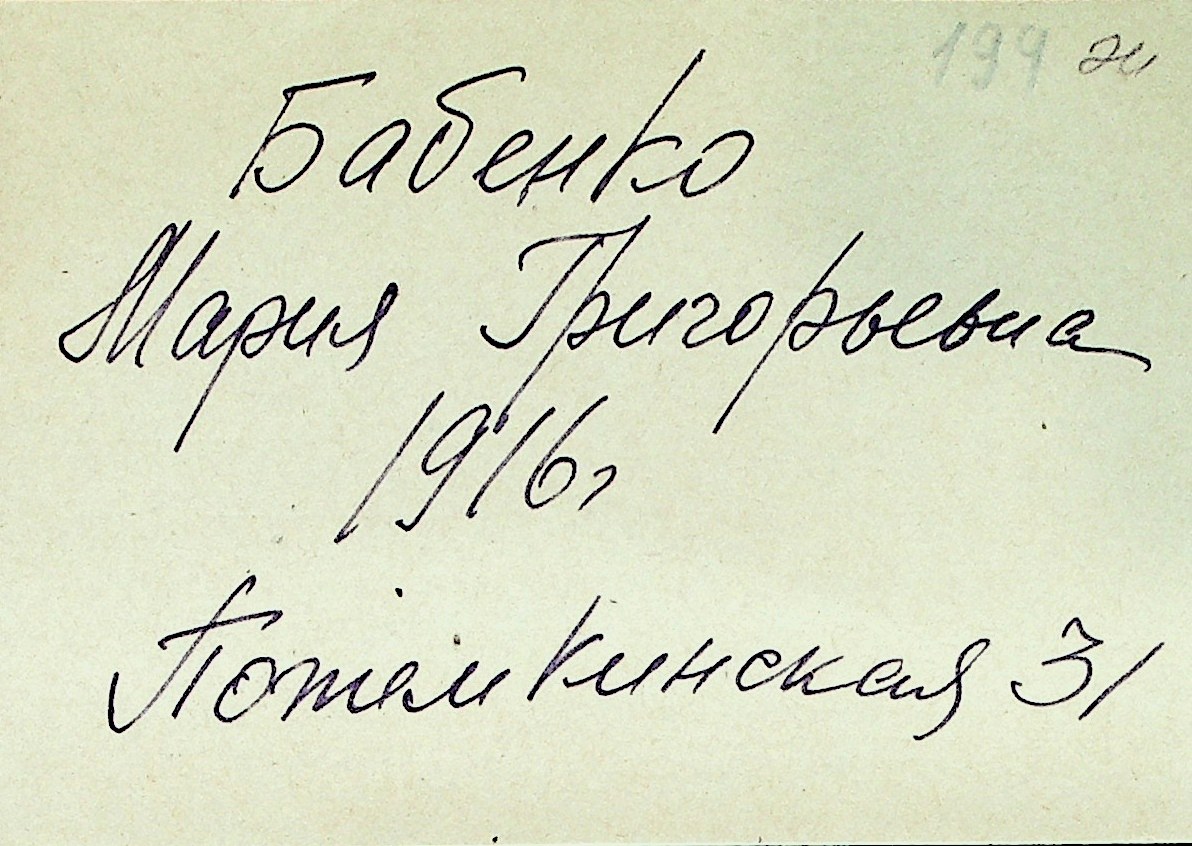 199 ж
Бабенко
Мария Григорьевна
1916г
Потемкинская 31